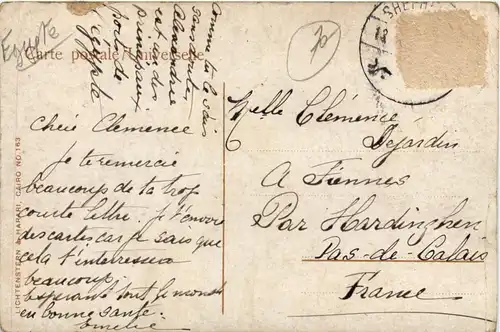 Egypte
Carte postale / Universelle
Comme tu le sais
sans doute
Alexandrie
est un des
principaux
ports de
l'Egypte
Cheie Clemence
Je te remercie
beaucoup de ta trop
courte lettre. Je t'envoie
des cartes car je sais que
cela t'interessera
beaucoup.
Esperant tout le monde
en bonne sante.
Emelie
Melle Clémence
Dejardin
A Fiennes
Par Hardinghen
Pas-de-Calais
France
SHEPH
LICHTENSTERN & HARARI, CAIRO NO. 163